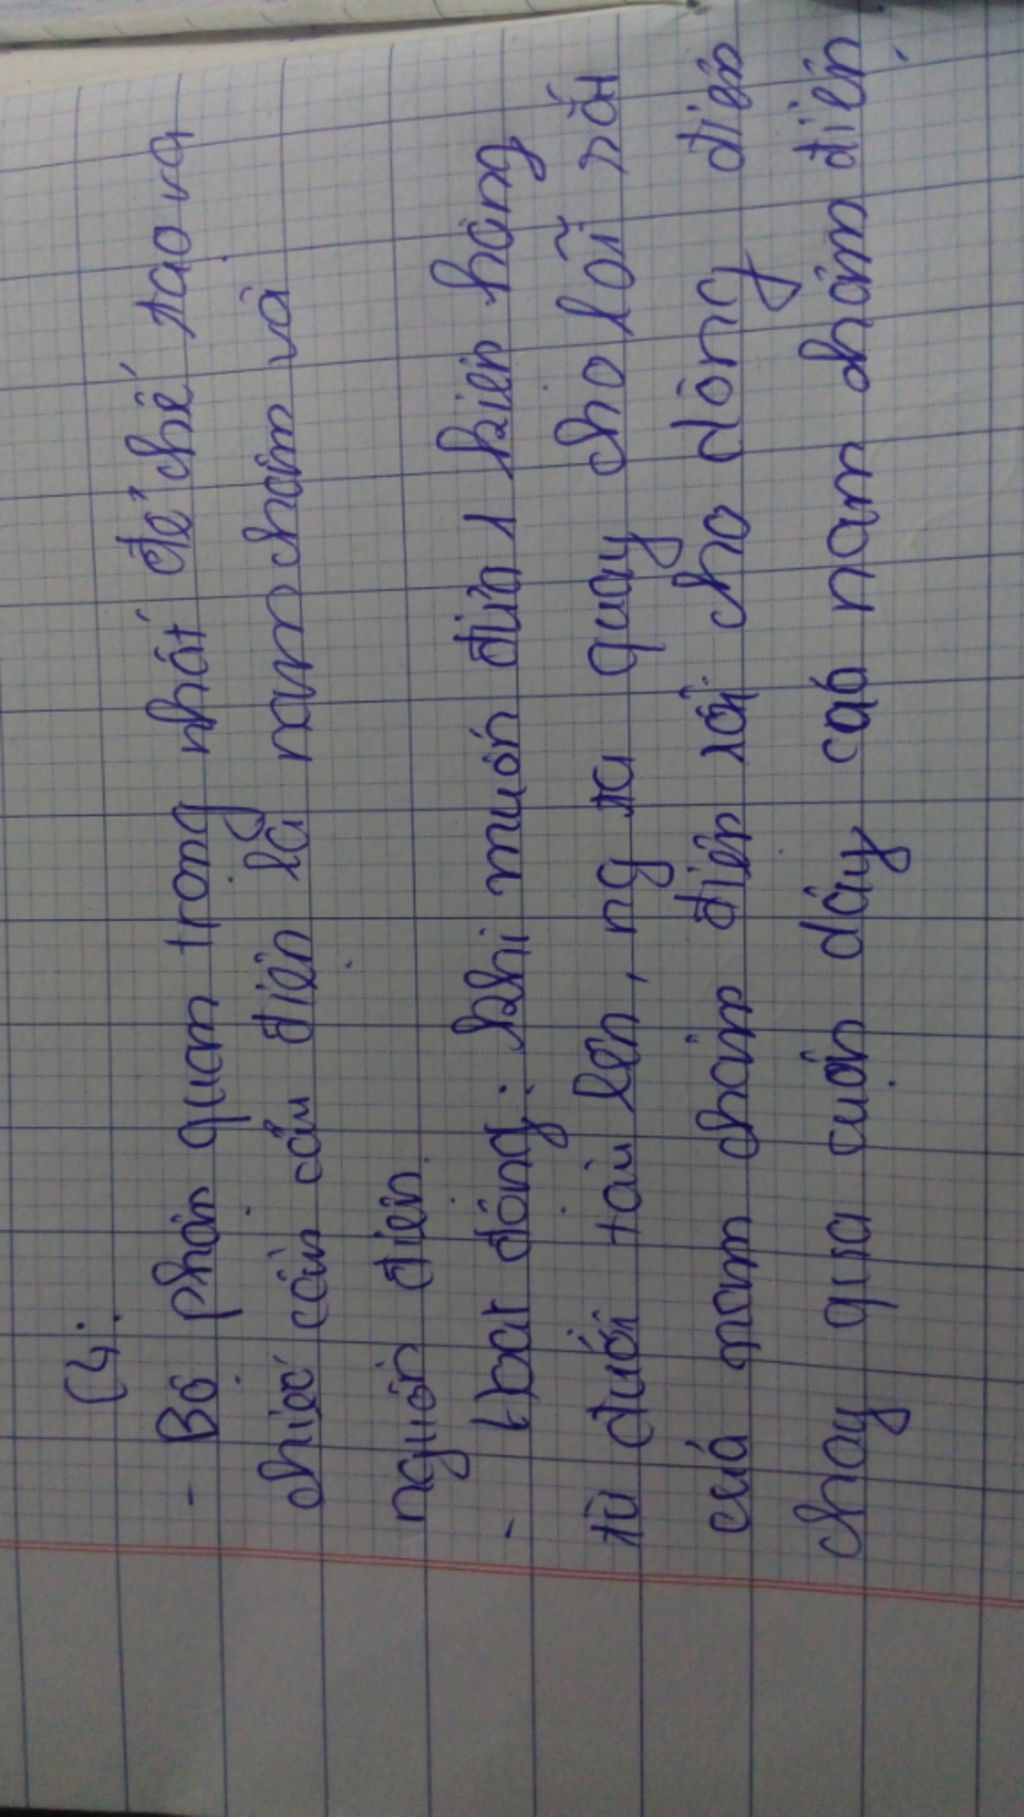 C4:
- Bộ phận quan trọng nhất để chế tạo ra
chiếc cần cẩu điện là nam châm và
nguồn điện.
- Hoạt động: Khi muốn đưa 1 kiện hàng
từ dưới tàu lên, ng ta quay cho lõi sắt
của nam châm điện rồi cho dòng điện
chạy qua cuộn dây của nam châm điện,